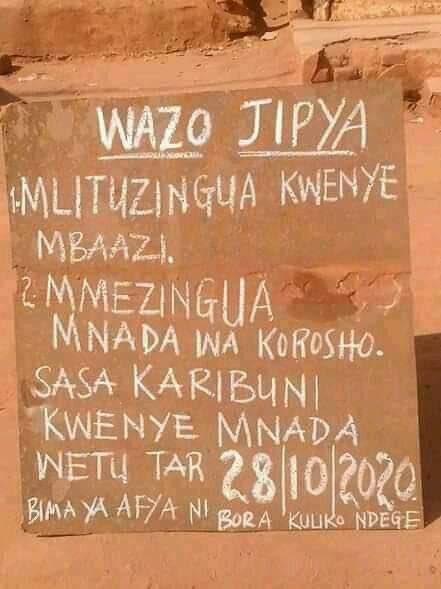 WAZO JIPYA
1. MLITUZINGUA KWENYE
MBAAZI.
2. MMEZINGUA
MNADA WA KOROSHO.
SASA KARIBUNI
KWENYE MNADA
WETU TAR 28/10/2020
BIMA YA AFYA NI BORA KULIKO NDEGE